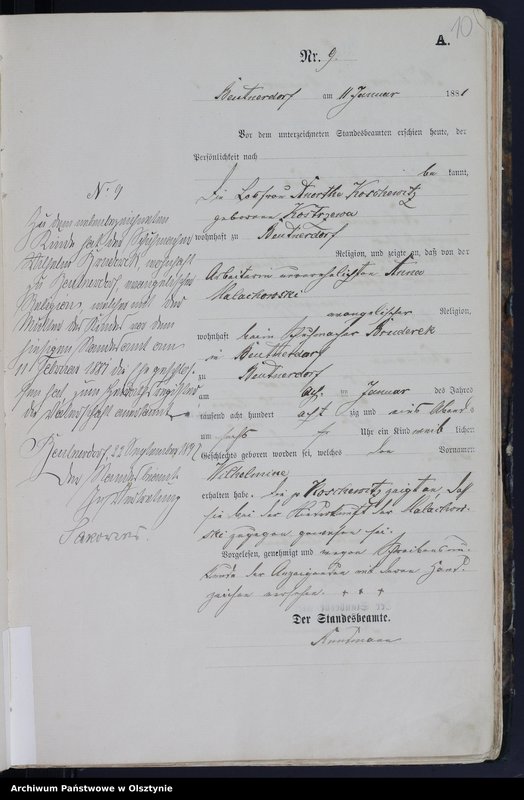 10
A.
Nr. 9.
Beutnerdorf am 11 Januar 1881
Vor dem unterzeichneten Standesbeamten erschien heute, der
Persönlichkeit nach
be kannt,
Die Losfrau Anorthe Koschewitz
geborene Kostrzewa
wohnhaft zu Beutnerdorf
Religion, und zeigte an, daß von der
Arbeiterin unverehelichten Anna
Malachowski
evangelischer Religion,
wohnhaft beim Schuhmacher Bruderek
in Beutnerdorf
zu Beutnerdorf
am acht ten Januar des Jahres
tausend acht hundert acht zig und eins Abends
um sechs Uhr ein Kind weib lichen
Geschlechts geboren worden sei, welches den Vornamen
Wilhelmine
erhalten habe. Die p Koschewitz zeigt an, daß
sie bei der Niederkunft der Malachow-
ski zugegen gewesen sei.
Vorgelesen, genehmigt und wegen Schreibensun-
kunde der Anzeigenden mit deren Hand-
zeichen versehen. + + +
Der Standesbeamte.
No 9
Zu dem nebenbezeichneten
Kinde hat der Schuhmacher
Wilhelm wohnhaft
zu Beutnerdorf, evangelischer
Religion, welcher mit der
Mutter des Kindes vor dem
hiesigen Standesamt am
11 Februar 1887 die Ehe geschlos-
sen hat, zum
die Vaterschaft anerkannt.
Beutnerdorf, 22 September
Der Standesbeamte
In Vertretung
Archiwum Państwowe w Olsztynie